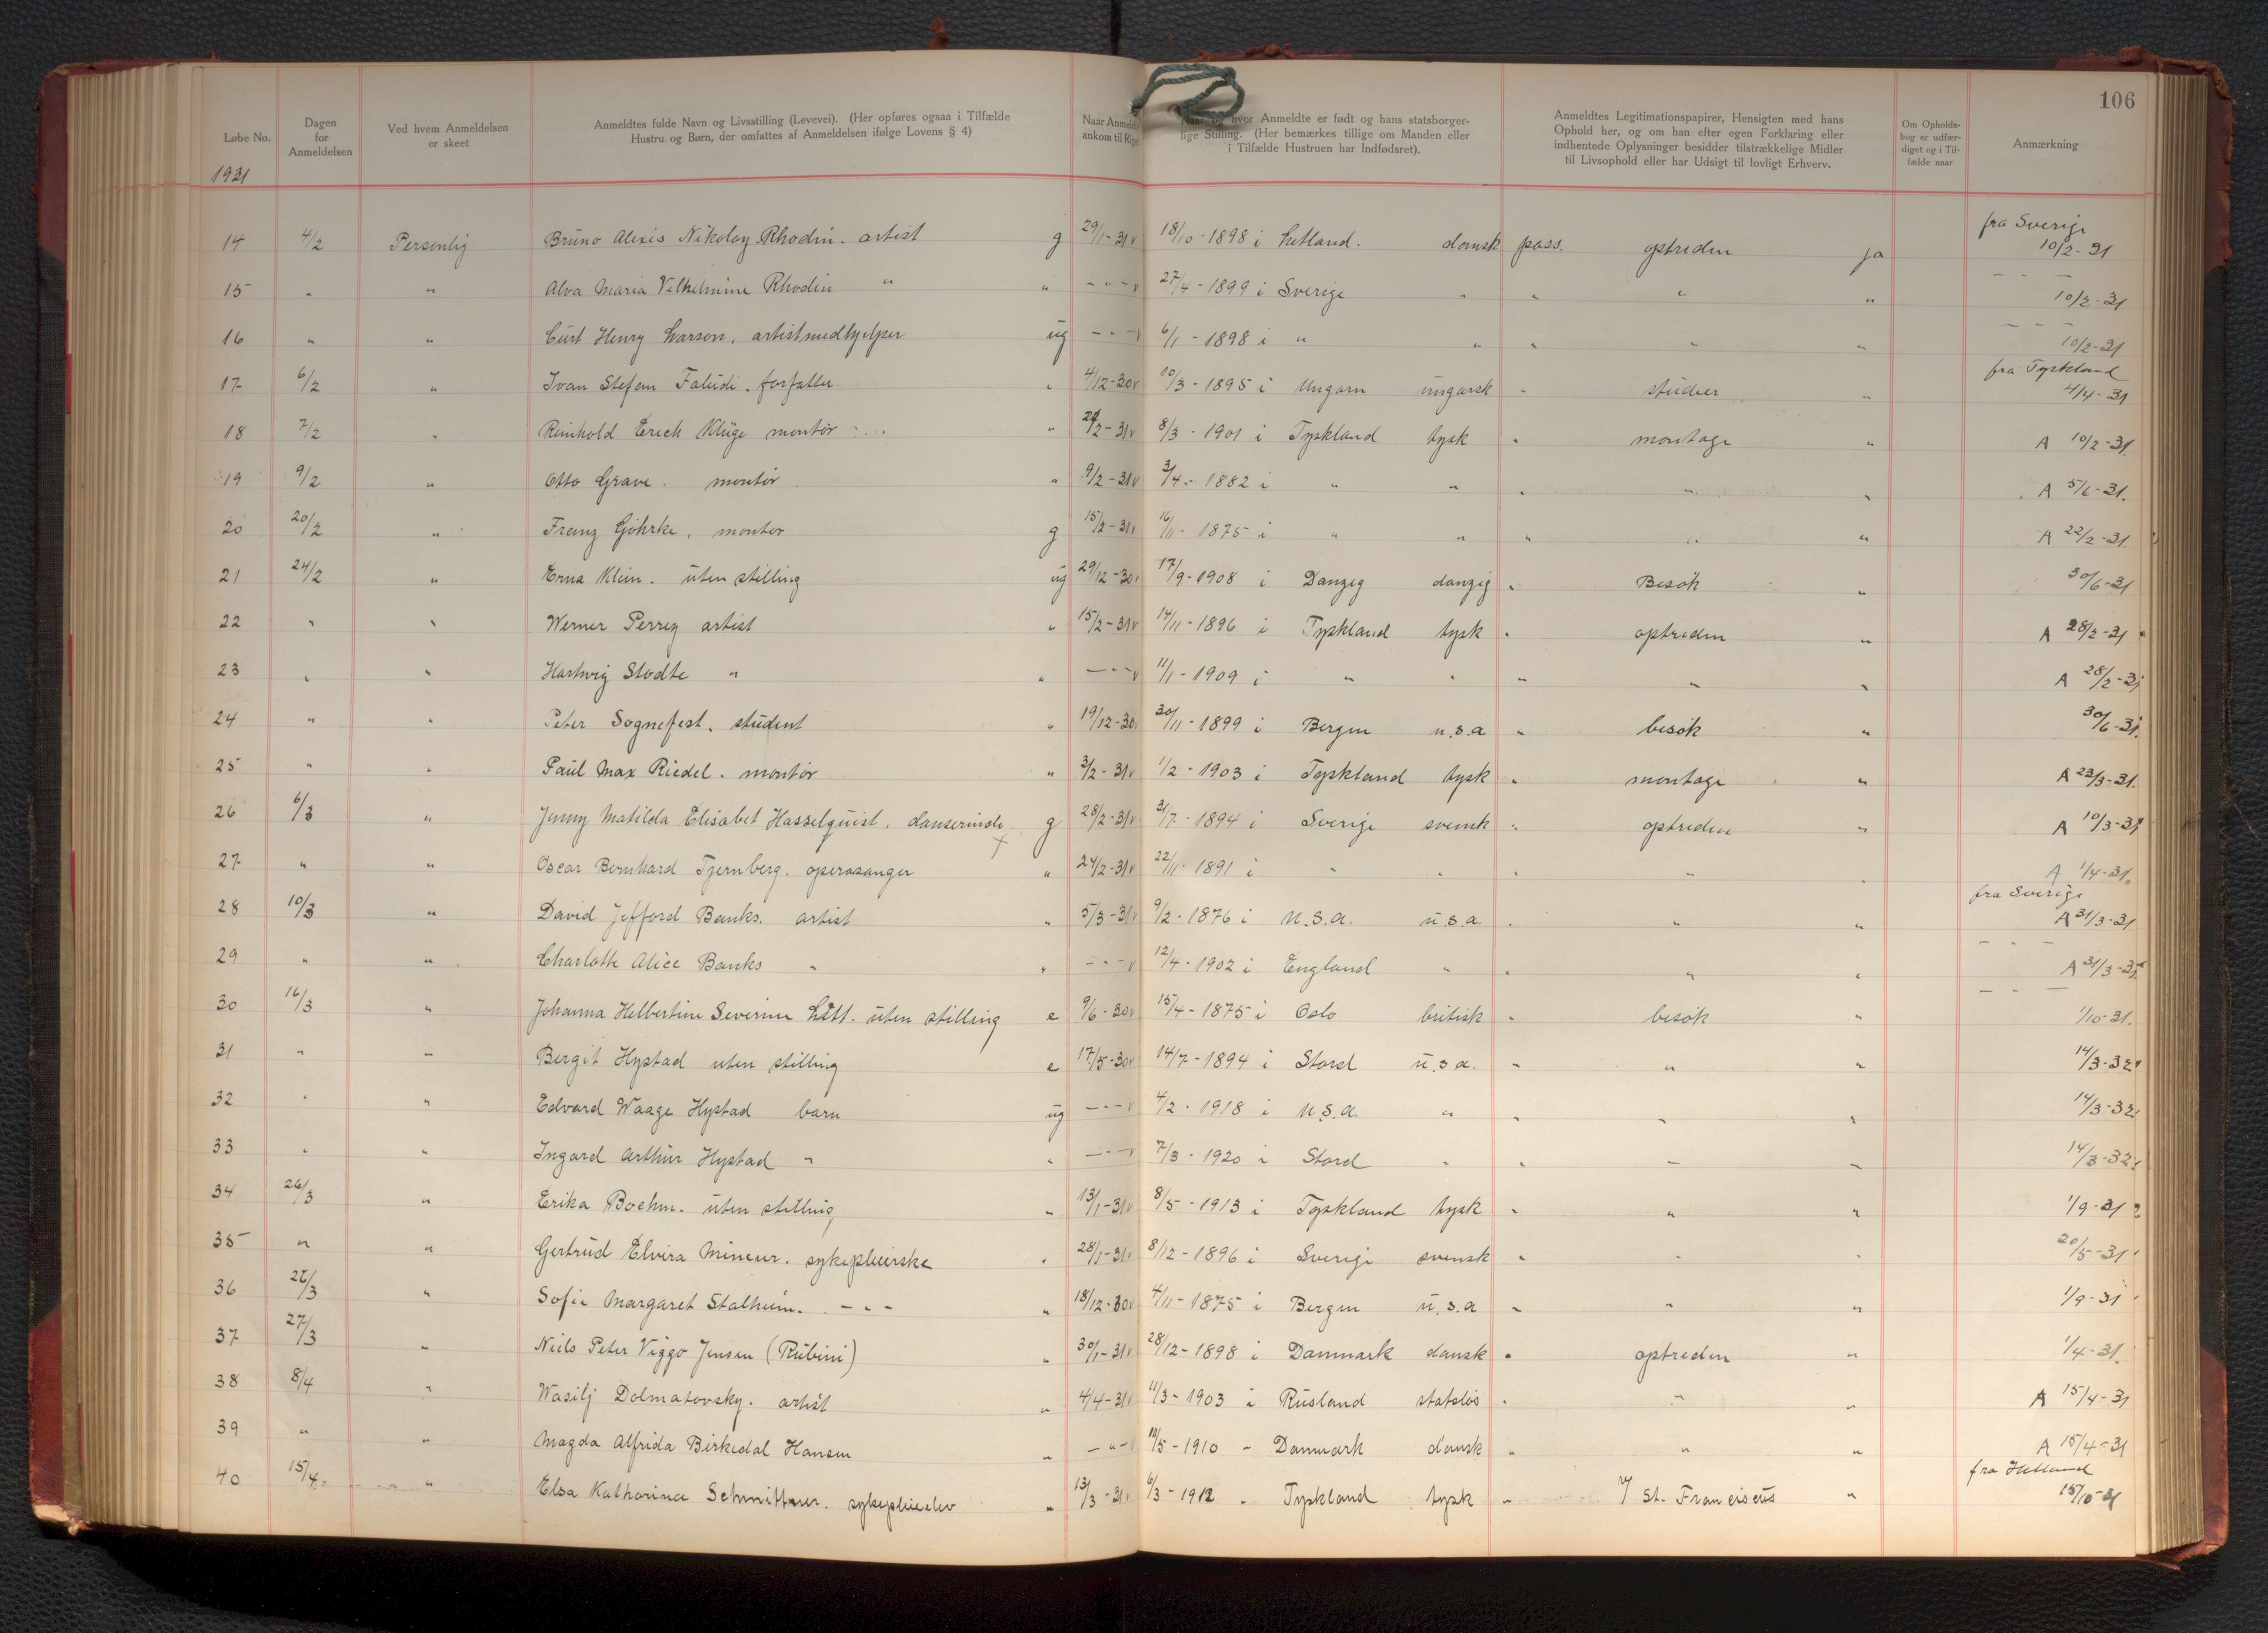 106
Løbe No.
Dagen for Anmeldelsen
Ved hvem Anmeldelsen er skeet
Anmeldtes fulde Navn og Livsstilling (Levevei). (Her opføres ogsaa i Tilfælde Hustru og Børn, der omfattes af Anmeldelsen ifølge Lovens § 4)
Naar Anmeldte ankom til Riget
Naar og hvor Anmeldte er født og hans statsborgerlige Stilling. (Her bemærkes tillige om Manden eller i Tilfælde Hustruen har Indfødsret).
Anmeldtes Legitimationspapirer, Hensigten med hans Ophold her, og om han efter egen Forklaring eller indhentede Oplysninger besidder tilstrækkelige Midler til Livsophold eller har Udsigt til lovligt Erhverv.
Om Opholdsbog er udfærdiget og i Tilfælde naar
Anmærkning
1931
14 4/2 Personlig Bruno Alexis Nikolay Rhodin. artist g 29/1-31 v 18/10-1898 i Letland. dansk pass. optreden ja fra Sverige 10/2-31
15 " " Alva Maria Vilhelmine Rhodin " " - " - v 27/4-1899 i Sverige " " " " - - - 10/2-31
16 " " Curt Henry Larson, artistmedhjelper ug - " - v 6/1-1898 i " " " " " - - - 10/2-31
17 6/2 " Ivan Stefan Faludi. forfatter " 4/12-30 v 10/3-1895 i Ungarn ungarsk " studier " fra Tyskland 4/4-31
18 7/2 " Reinhold Erich Kluge montör " /2-31 v 8/3-1901 i Tyskland tysk " montage " A 10/2-31.
19 9/2 " Otto Grave. montör " 9/2-31 v 3/4-1882 i " " " " " A 5/6-31.
20 20/2 " Franz Göhrke, montör g 15/2-31 v 16/11-1875 i " " " " " A 22/2-31.
21 24/2 " Erna Klein. uten stilling ug 29/12-30 v 17/9-1908 i Danzig danzig " Besök " 30/6-31
22 " " Werner Perrey artist " 15/2-31 v 14/11-1896 i Tyskland tysk " optreden " A 28/2-31
23 " " Hartwig Stodte " " - " - v 11/1-1909 i " " " " " A 28/2-31
24 " " Peter Sognefest. student " 19/12-30 v 30/11-1899 i Bergen u.s.a " besök " 30/6-31.
25 " " Paul Max Riedel. montör " 3/2-31 v 1/2-1903 i Tyskland tysk " montage " A 23/3-31.
26 6/3 " Jenny Matilda Elisabet Hasselquist. danserinde g 28/2-31 v 31/7-1894 i Sverige svensk " optreden " A 10/3-31
27 " " Oscar Bernhard Tjernberg. operasanger " 24/2-31 v 22/11-1891 i " " " " " A 1/4-31.
28 10/3 " David Jefford Banks. artist " 5/3-31 v 9/2-1876 i U.S.A. u.s.a. " " " fra Sverige A 31/3-31
29 " " Charlotte Alice Banks " " - " - v 12/4-1902 i England " " " " - - - A 31/3-31
30 16/3 " Johanna Helbertine Severine Litt. uten stilling e 9/6-30 v 15/4-1875 i Oslo britisk " besök " - - - 1/10-31.
31 " " Bergit Hystad uten stilling e 17/5-30 v 14/7-1894 i Stord u.s.a. " " " 14/3-32
32 " " Edvard Waage Hystad barn ug - " - v 4/2-1918 i U.S.A. " " " " 14/3-32
33 " " Ingard Arthur Hystad " " - " - v 7/3-1920 i Stord " " " " 14/3-32
34 26/3 " Erika Boehm. uten stilling " 13/1-31 v 8/5-1913 i Tyskland tysk " " " 1/9-31
35 " " Gertrud Elvira Mineur. sykepleierske " 28/1-31 v 8/12-1896 i Sverige svensk " " " 20/5-31
36 26/3 " Sofie Margaret Stalheim. - " - " 18/12-30 v 4/11-1875 i Bergen u.s.a " " " 1/9-31
37 27/3 " Niels Peter Viggo Jensen (Rubini) " 30/1-31 v 28/12-1898 i Danmark dansk " optreden " 1/4-31.
38 8/4 " Wasilj Dolmatovsky. artist " 4/4-31 v 11/3-1903 i Rusland statslös " " " A 15/4-31
39 " " Magda Alfrida Birkedal Hansen " - " - v /5-1910 - Danmark dansk " " " A 15/4-31
40 15/4 " Elsa Katharina Schmittner. sykepleieelev " 13/3-31 v 6/3-1912 " Tyskland tysk " v/ St. Franciscus " fra Holland 15/10-31